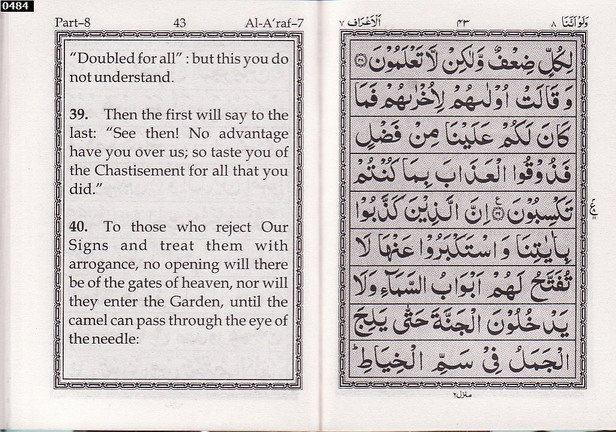 0484
Part–8 43 Al-A'raf–7
“Doubled for all” : but this you do
not understand.
39. Then the first will say to the
last: “See then! No advantage
have you over us; so taste you of
the Chastisement for all that you
did.”
40. To those who reject Our
Signs and treat them with
arrogance, no opening will there
be of the gates of heaven, nor will
they enter the Garden, until the
camel can pass through the eye of
the needle:
وَلَوْ اَنَّنَا ٨ ٤٣ اَلْاَعْرَاف ٧
لِكُلٍّ ضِعْفٌ وَّلٰكِنْ لَّا تَعْلَمُوْنَ ﴿٣٨﴾
وَ قَالَتْ اُوْلٰىهُمْ لِاُخْرٰىهُمْ فَمَا
كَانَ لَكُمْ عَلَيْنَا مِنْ فَضْلٍ
فَذُوْقُوا الْعَذَابَ بِمَا كُنْتُمْ
تَكْسِبُوْنَ ﴿٣٩﴾ ع اِنَّ الَّذِيْنَ كَذَّبُوْا
بِاٰيٰتِنَا وَ اسْتَكْبَرُوْا عَنْهَا لَا
تُفَتَّحُ لَهُمْ اَبْوَابُ السَّمَآءِ وَلَا
يَدْخُلُوْنَ الْجَنَّةَ حَتّٰى يَلِجَ
الْجَمَلُ فِيْ سَمِّ الْخِيَاطِ ؕ
منزل ٢